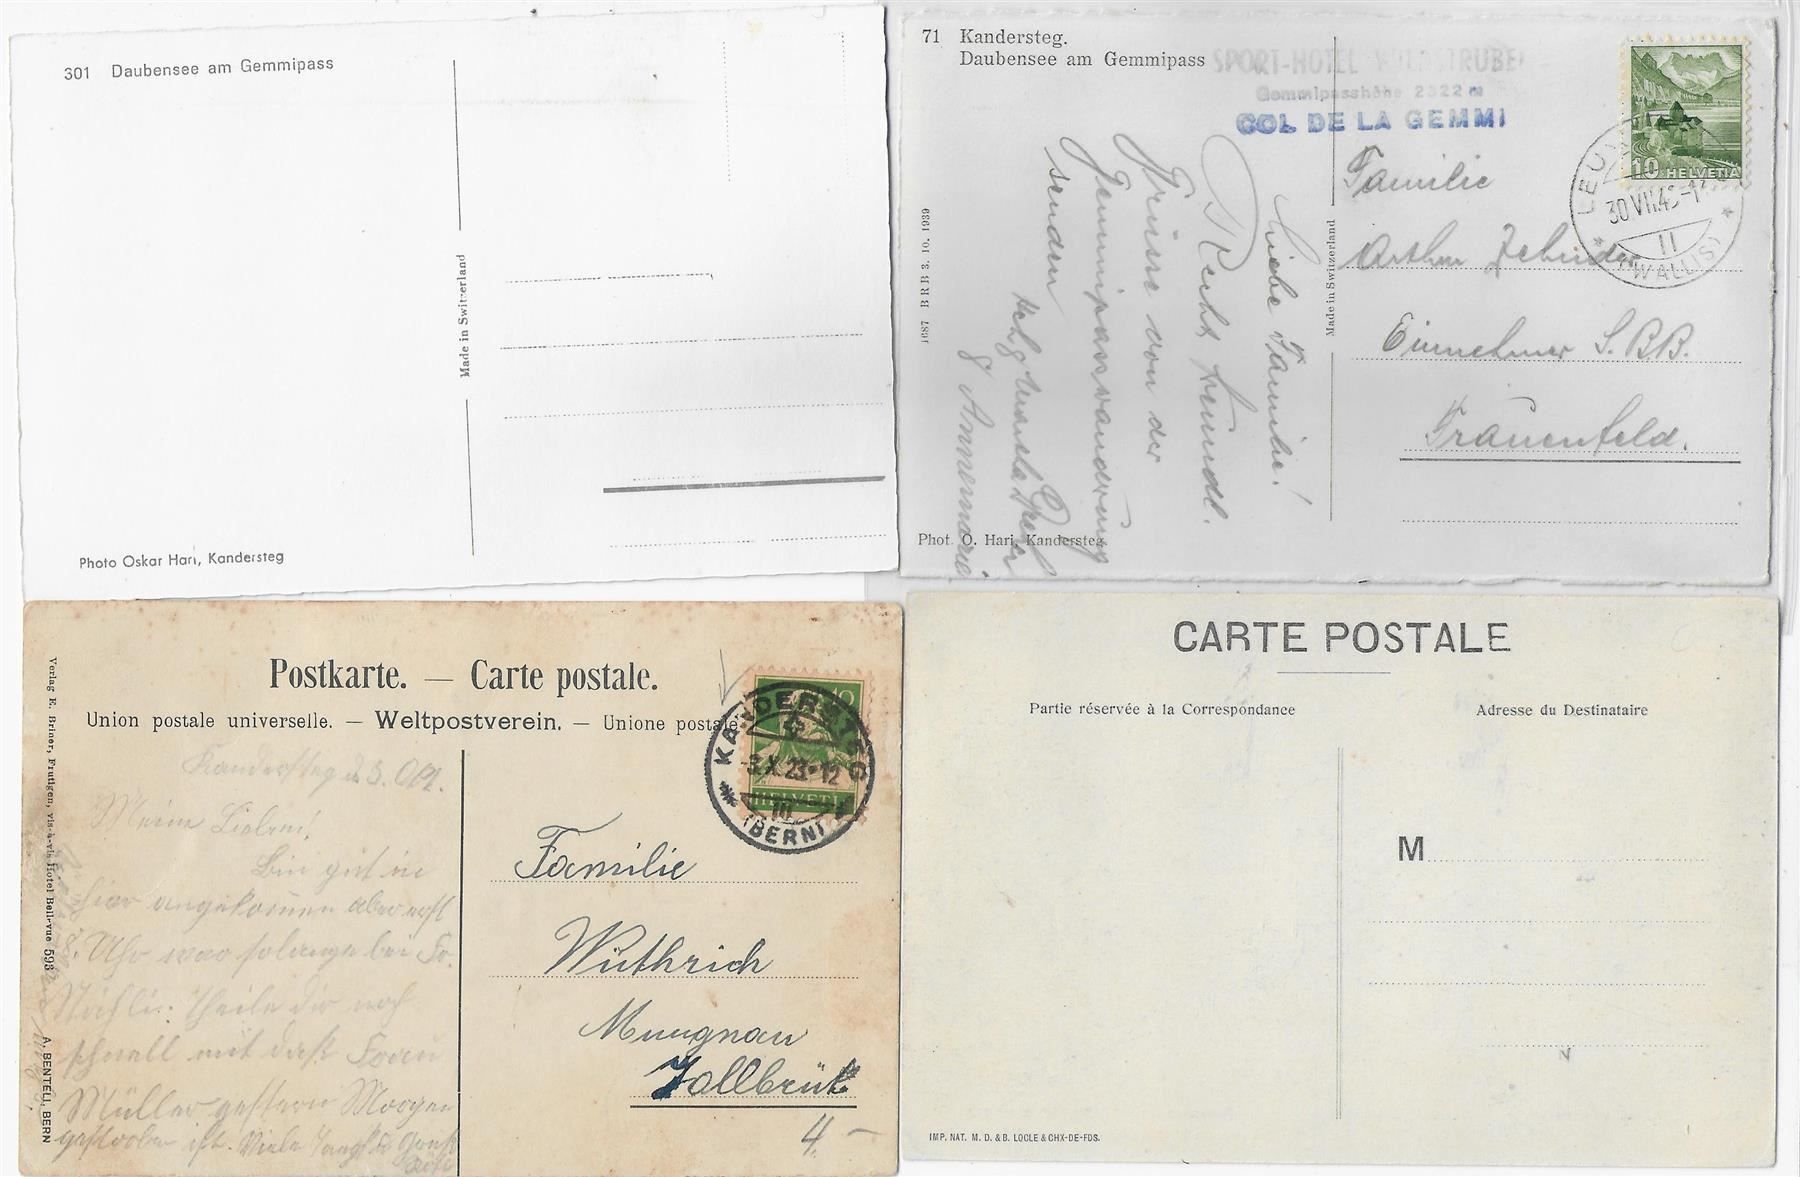 301 Daubensee am Gemmipass
Made in Switzerland
Photo Oskar Hari, Kandersteg
71 Kandersteg.
Daubensee am Gemmipass
SPORT-HOTEL WILDSTRUBEL
Gemmipasshöhe 2322 m
COL DE LA GEMMI
10 HELVETIA
30.VII.4
II
(WALLIS)
1687 BRB 3. 10. 1939
Made in Switzerland
Liebe Familie!
Recht freundl.
Grüsse von der
Gemmipasswanderung
senden
& Annemarie
Familie
Arthur Zehnder
Einnehmer S.B.B.
Frauenfeld.
Phot. O. Hari, Kandersteg
Postkarte. — Carte postale.
Union postale universelle. — Weltpostverein. — Unione postale
KANDERSTEG
-3.X.23-12
HELVETIA
III
(BERN)
Verlag E. Briner, Frutigen, vis-à-vis Hotel Bellevue 593
A. BENTELI, BERN
Kandersteg d. 3. Okt.
Meine Lieben!
Bin gut in
hier angekommen aber erst
Uhr war solange bei Fr.
Theile dir noch
schnell mit dass Frau
Müller gestern Morgen
gestorben ist. Viele
Familie
Wüthrich
Zollbrück
4. –
CARTE POSTALE
Partie réservée à la Correspondance
Adresse du Destinataire
M
IMP. NAT. M. D. & B. LOCLE & CHX-DE-FDS.